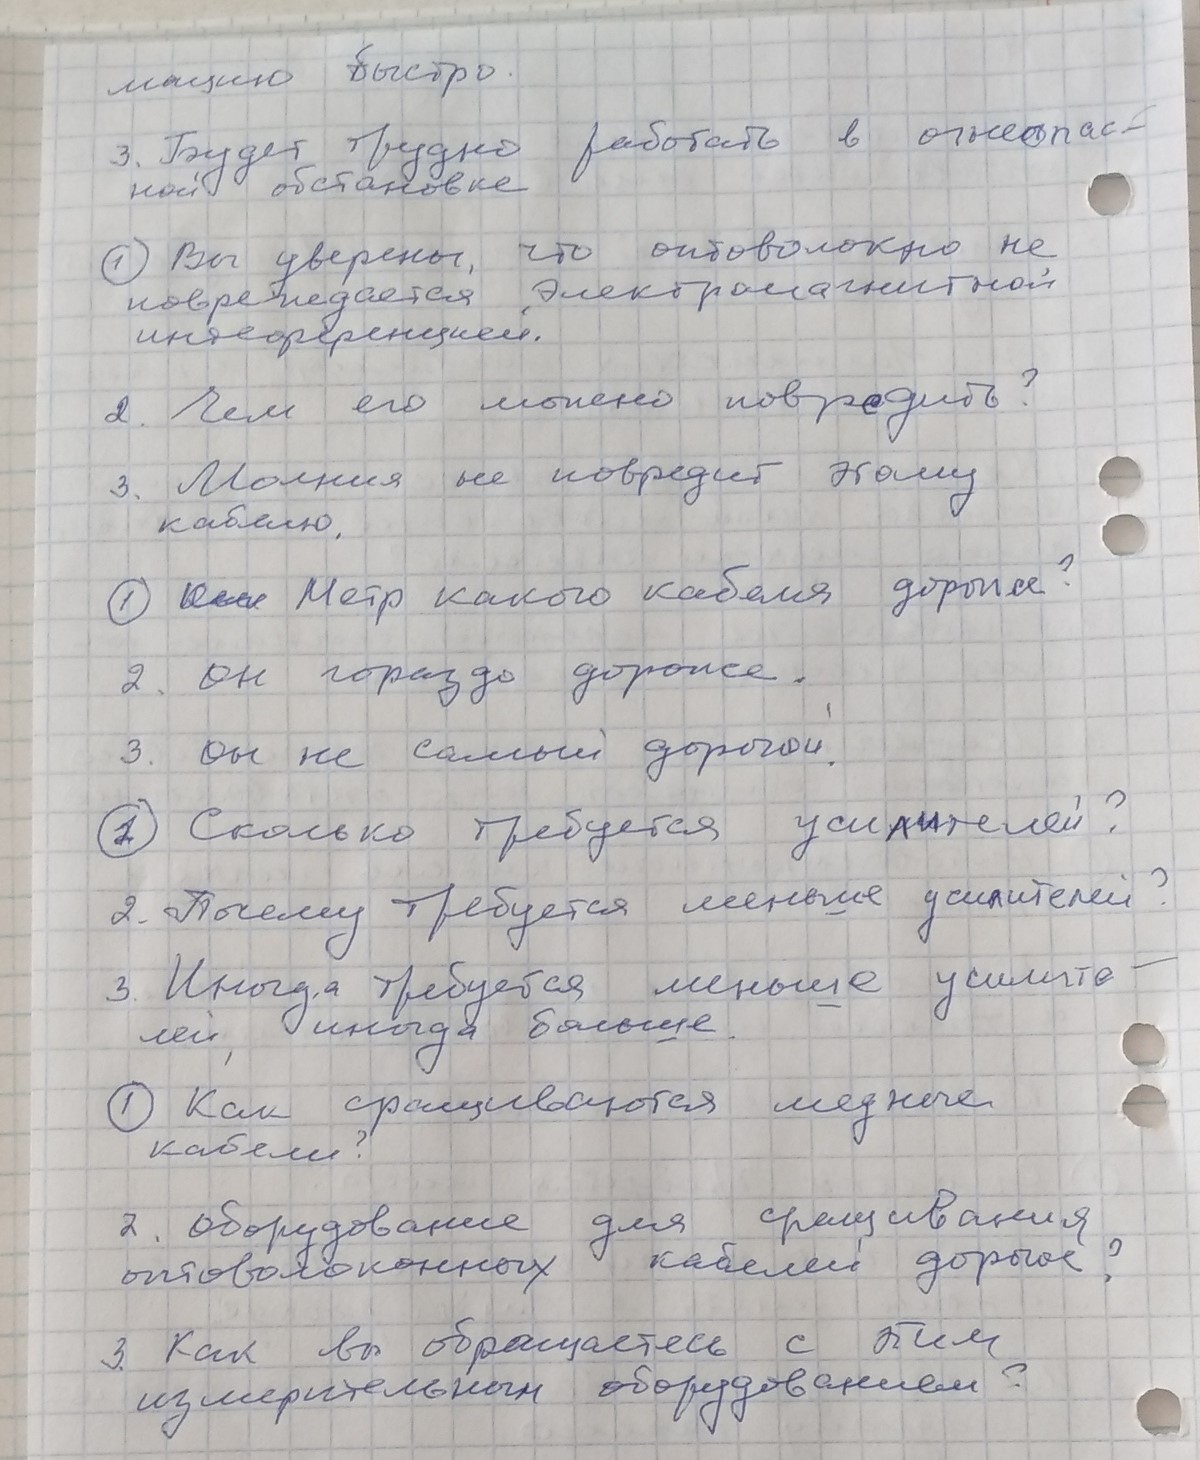 мацию быстро.
3. Будет трудно работать в огнеопас-
ной обстановке
1 Вы уверены, что оптоволокно не
повреждается электромагнитной
интерференцией.
2. Чем его можно повредить?
3. Молния не повредит этому
кабелю.
1 Метр какого кабеля дороже?
2. Он гораздо дороже.
3. Он не самый дорогой!
1 Сколько требуется усилителей?
2. Почему требуется меньше усилителей?
3. Иногда требуется меньше усилите-
лей, иногда больше.
1 Как сращиваются медные
кабели?
2. Оборудование для сращивания
оптоволоконных кабелей дорогое?
3. Как вы обращаетесь с этим
измерительным оборудованием?